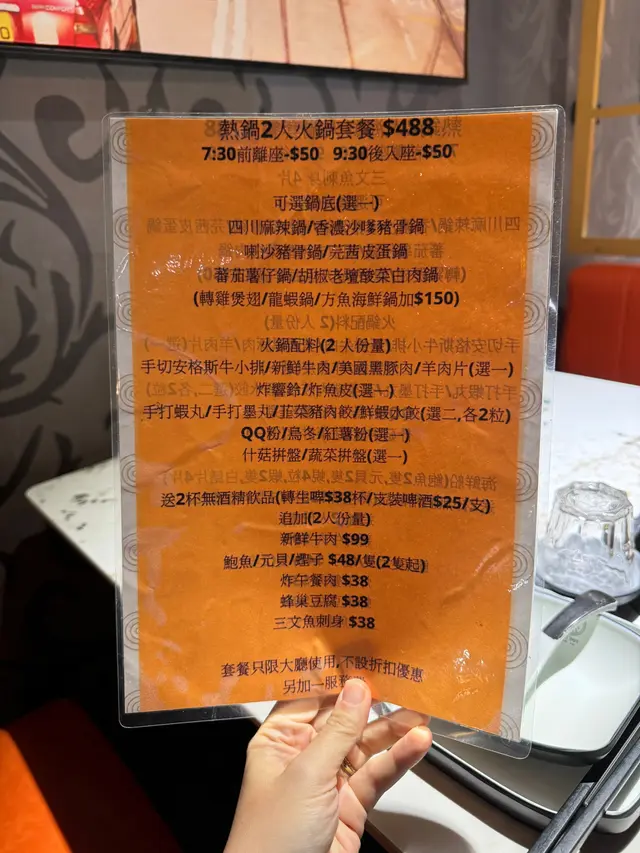 熱鍋2人火鍋套餐 $488
7:30前離座-$50 9:30後入座-$50
可選鍋底(選一)
四川麻辣鍋/香濃沙嗲豬骨鍋
喇沙豬骨鍋/芫茜皮蛋鍋
蕃茄薯仔鍋/胡椒老壇酸菜白肉鍋
(轉雞煲翅/龍蝦鍋/方魚海鮮鍋加$150)
火鍋配料(2 人份量)
手切安格斯牛小排/新鮮牛肉/美國黑豚肉/羊肉片(選一)
炸響鈴/炸魚皮(選一)
手打蝦丸/手打墨丸/韮菜豬肉餃/鮮蝦水餃(選二,各2粒)
QQ粉/烏冬/紅薯粉(選一)
什菇拼盤/蔬菜拼盤(選一)
送2杯無酒精飲品(轉生啤$38杯/支裝啤酒$25/支)
追加(2人份量)
新鮮牛肉 $99
鮑魚/元貝/蟶子 $48/隻(2隻起)
炸午餐肉 $38
蜂巢豆腐 $38
三文魚刺身 $38
套餐只限大廳使用,不設折扣優惠
另加一服務